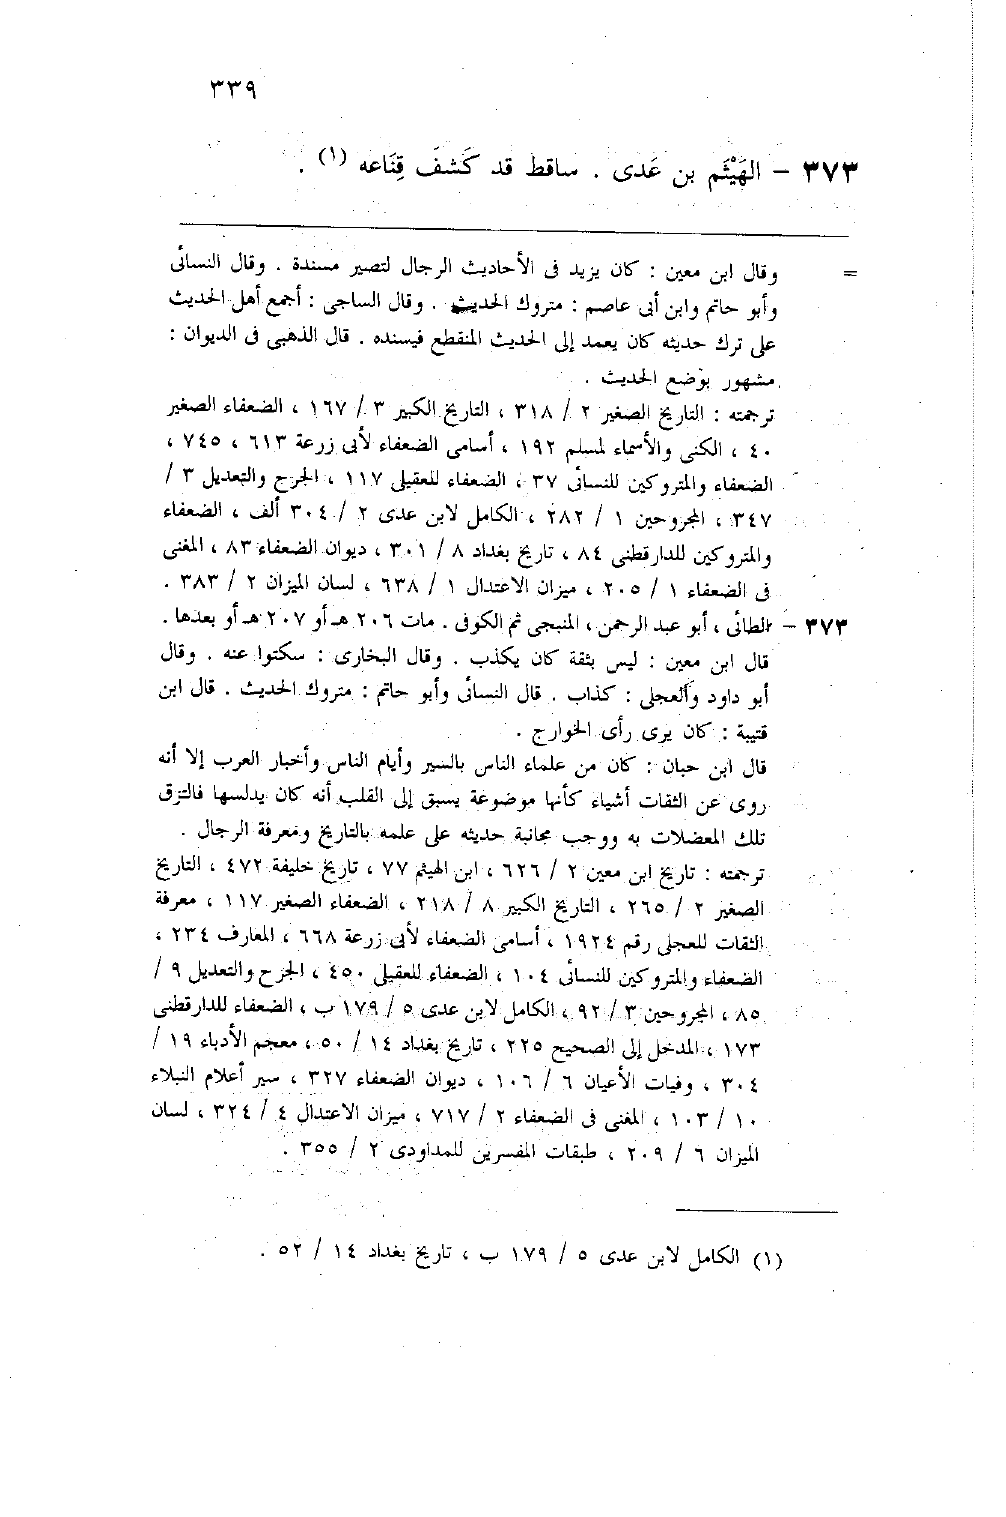 ٣٣٩
٣٧٣ – الهَيْثَم بن عَدى . ساقط قد كَشفَ قِنَاعه (١) .
= وقال ابن معين : كان يزيد فى الأحاديث الرجال لتصير مسندة . وقال النسائى
وأبو حاتم وابن أبى عاصم : متروك الحديث . وقال الساجى : أجمع أهل الحديث
على ترك حديثه كان يعمد إلى الحديث المنقطع فيسنده . قال الذهبى فى الديوان :
مشهور بوضع الحديث .
ترجمته : التاريخ الصغير ٢ / ٣١٨ ، التاريخ الكبير ٣ / ١٦٧ ، الضعفاء الصغير
٤٠ ، الكنى والأسماء لمسلم ١٩٢ ، أسامى الضعفاء لأبى زرعة ٦١٣ ، ٧٤٥ ،
الضعفاء والمتروكين للنسائى ٣٧ ، الضعفاء للعقيلى ١١٧ ، الجرح والتعديل ٣ /
٣٤٧ ، المجروحين ١ / ٢٨٢ ، الكامل لابن عدى ٢ / ٣٠٤ ألف ، الضعفاء
والمتروكين للدارقطنى ٨٤ ، تاريخ بغداد ٨ / ٣٠١ ، ديوان الضعفاء ٨٣ ، المغنى
فى الضعفاء ١ / ٢٠٥ ، ميزان الاعتدال ١ / ٦٣٨ ، لسان الميزان ٢ / ٣٨٣ .
٣٧٣ – الطائى ، أبو عبد الرحمن ، المنبجى ثم الكوفى . مات ٢٠٦ هـ أو ٢٠٧ هـ أو بعدها .
قال ابن معين : ليس بثقة كان يكذب . وقال البخارى : سكتوا عنه . وقال
أبو داود والعجلى : كذاب . قال النسائى وأبو حاتم : متروك الحديث . قال ابن
قتيبة : كان يرى رأى الخوارج .
قال ابن حبان : كان من علماء الناس بالسير وأيام الناس وأخبار العرب إلا أنه
روى عن الثقات أشياء كأنها موضوعة يسبق إلى القلب أنه كان يدلسها فالتزق
تلك المعضلات به ووجب مجانبة حديثه على علمه بالتاريخ ومعرفة الرجال .
ترجمته : تاريخ ابن معين ٢ / ٦٢٦ ، ابن الهيثم ٧٧ ، تاريخ خليفة ٤٧٢ ، التاريخ
الصغير ٢ / ٢٦٥ ، التاريخ الكبير ٨ / ٢١٨ ، الضعفاء الصغير ١١٧ ، معرفة
الثقات للعجلى رقم ١٩٢٤ ، أسامى الضعفاء لأبى زرعة ٦٦٨ ، المعارف ٢٣٤ ،
الضعفاء والمتروكين للنسائى ١٠٤ ، الضعفاء للعقيلى ٤٥٠ ، الجرح والتعديل ٩ /
٨٥ ، المجروحين ٣ / ٩٢ ، الكامل لابن عدى ٥ / ١٧٩ ب ، الضعفاء للدارقطنى
١٧٣ ، المدخل إلى الصحيح ٢٢٥ ، تاريخ بغداد ١٤ / ٥٠ ، معجم الأدباء ١٩ /
٣٠٤ ، وفيات الأعيان ٦ / ١٠٦ ، ديوان الضعفاء ٣٢٧ ، سير أعلام النبلاء
١٠ / ١٠٣ ، المغنى فى الضعفاء ٢ / ٧١٧ ، ميزان الاعتدال ٤ / ٣٢٤ ، لسان
الميزان ٦ / ٢٠٩ ، طبقات المفسرين للمداودى ٢ / ٣٥٥ .
(١) الكامل لابن عدى ٥ / ١٧٩ ب ، تاريخ بغداد ١٤ / ٥٢ .